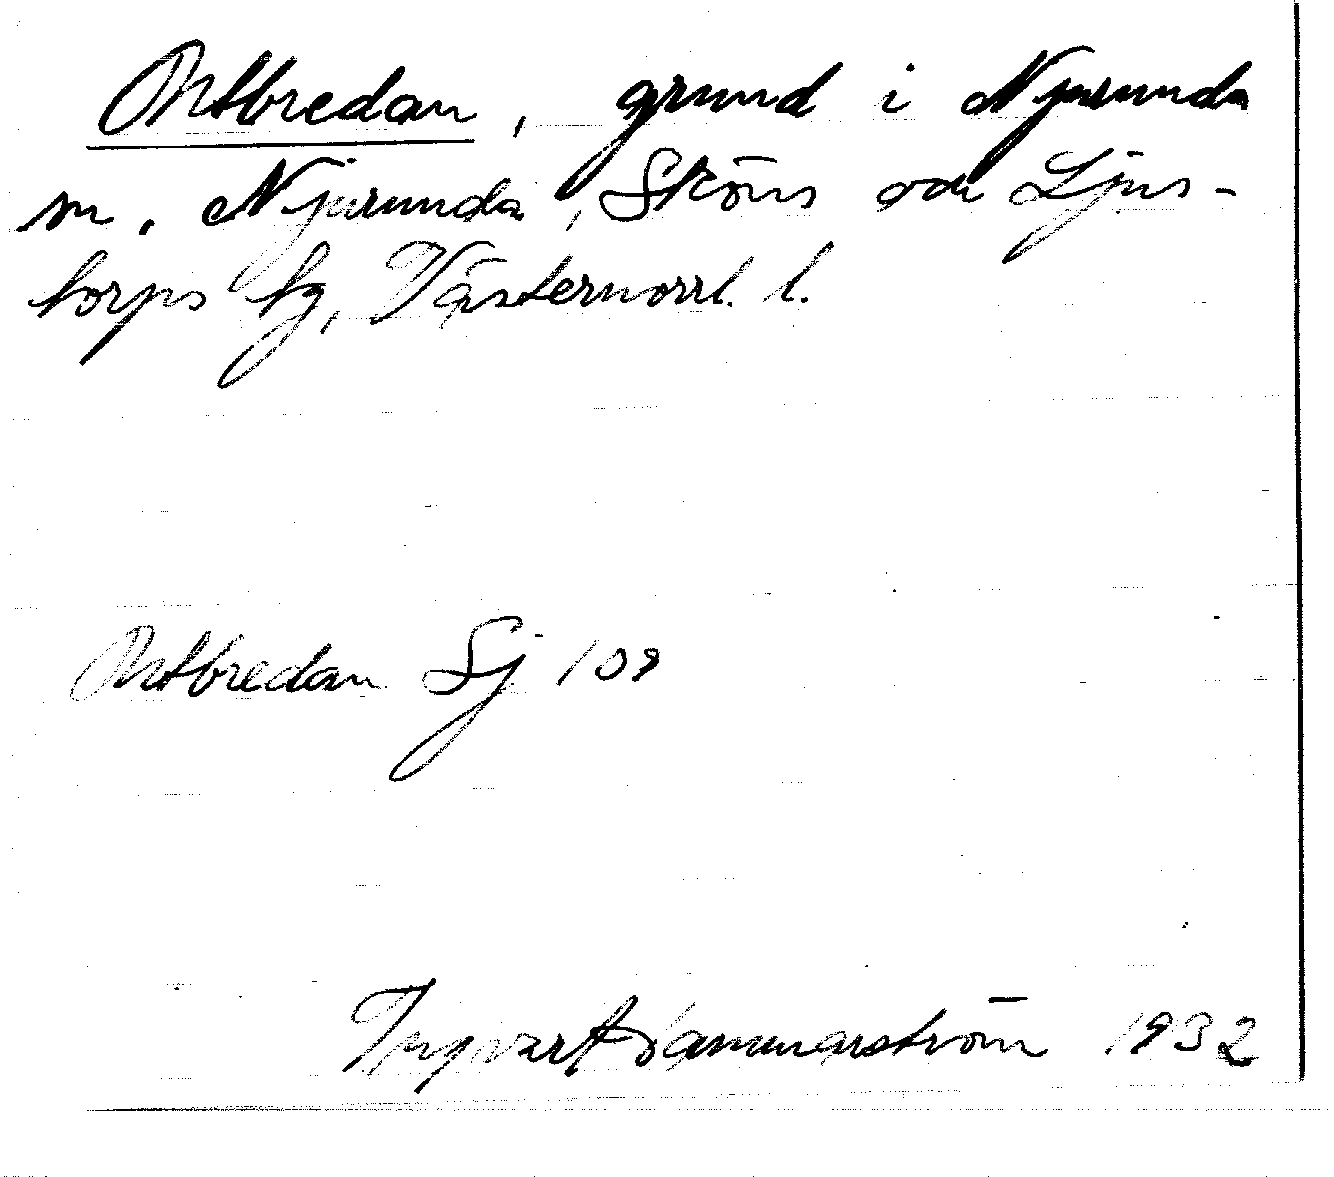 Ortbredan, grund i Njurunda
sn. Njurunda, Sköns och Ljus-
torps tg, Västernorrl. l.
Ortbredan Sj 109
Ingvart Hammarström 1932